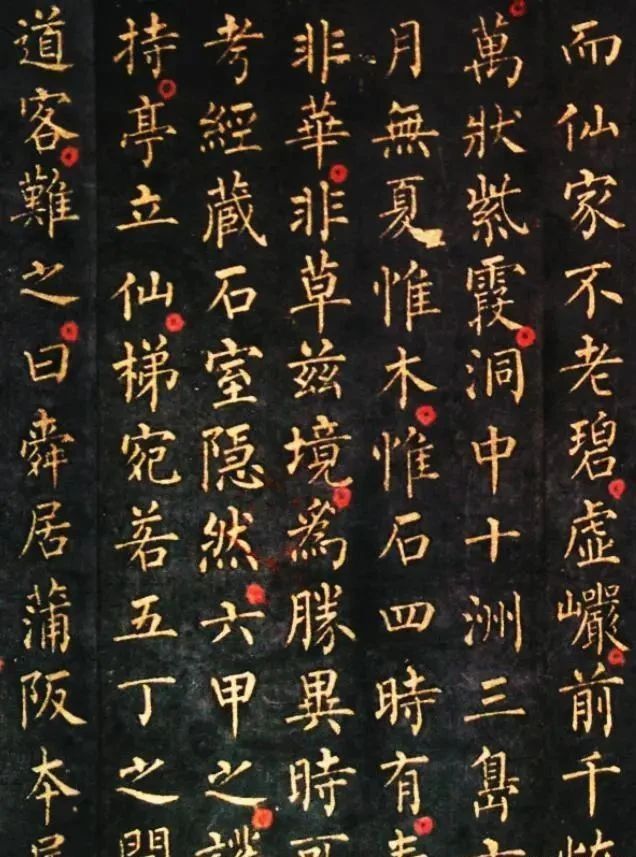 而仙家不老碧虚巖前千
萬狀紫霞洞中十洲三島
月無夏惟木惟石四時有
非華非草兹境為勝異時
考經蔵石室隠然六甲之
持亭立仙梯宛若五丁之
道客難之曰舜居蒲阪本